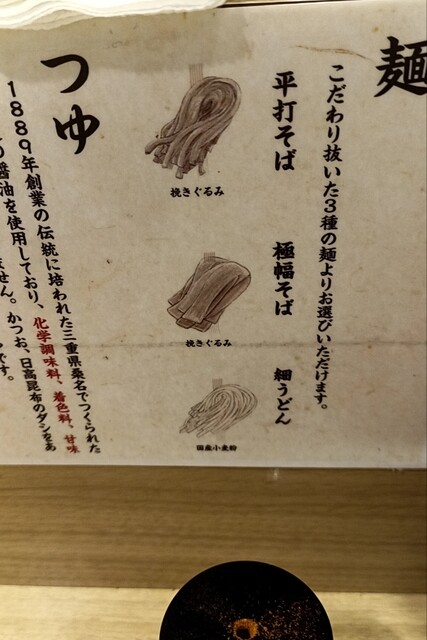 麺
こだわり抜いた3種の麺よりお選びいただけます。
平打そば
挽きぐるみ
極幅そば
挽きぐるみ
細うどん
国産小麦粉
つゆ
1889年創業の伝統に培われた三重県桑名でつくられた
醤油を使用しており、化学調味料、着色料、甘味
ません。かつお、日高昆布のダシをあ
です。